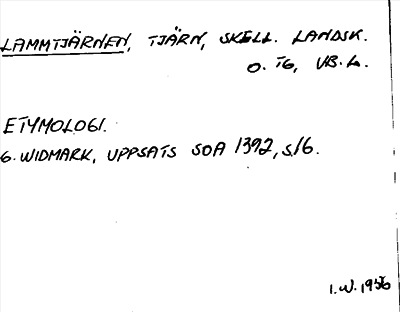 LAMMTJÄRNEN, TJÄRN, SKELL. LANDSK.
O. TG, VB.L.
ETYMOLOGI.
G. WIDMARK, UPPSATS SOA 1392, s16.
I.W. 1956